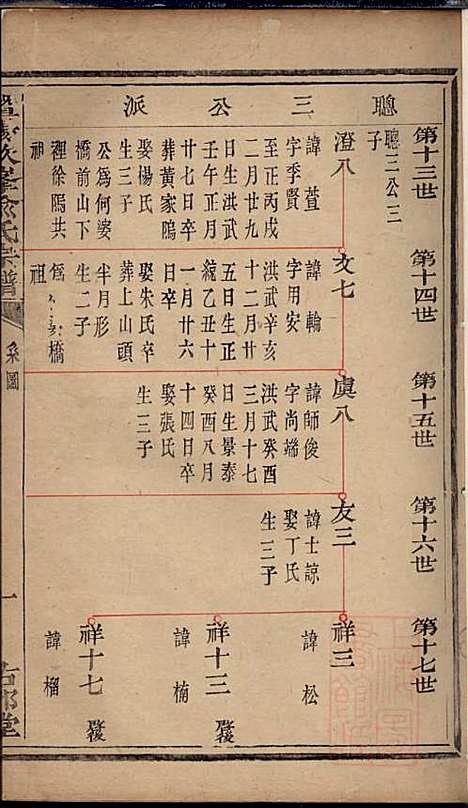 聰三公派
第十三世
第十四世
第十五世
第十六世
第十七世
聰三公三
子
澄八
諱萱
字季賢
至正丙戌
二月廿九
日生洪武
壬午正月
廿七日卒
葬黃家塢
娶楊氏
生三子
公為何婆
橋前山下
裡徐隝共
祖
文七
諱輪
字用安
洪武辛亥
十二月廿
五日生正
統乙丑十
一月廿六
日卒
娶朱氏卒
葬上山頭
半月形
生二子
橋
祖
虞八
諱師俊
字尚端
洪武癸酉
三月十七
日生景泰
癸酉八月
十四日卒
娶張氏
生三子
友三
諱士諒
娶丁氏
生三子
祥三
諱松
祥十三
諱楠
祥十七
諱榴
氏宗譜
系圖
一